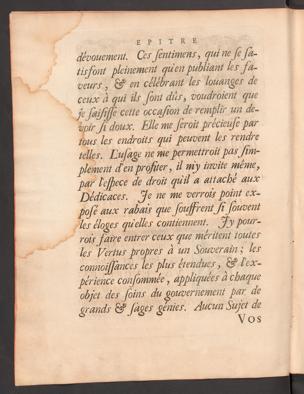 EPITRE
dévouement. Ces sentimens, qui ne se sa-
tisfont pleinement qu'en publiant les fa-
veurs, & en célébrant les louanges de
ceux à qui ils sont dûs, voudroient que
je saisisse cette occasion de remplir un de-
voir si doux. Elle me seroit précieuse par
tous les endroits qui peuvent les rendre
telles. L'usage ne me permettroit pas sim-
plement d'en profiter, il my invite même,
par l'espece de droit qu'il a attaché aux
Dédicaces. Je ne me verrois point ex-
posé aux rabais que souffrent si souvent
les éloges qu'elles contiennent. Jy pour-
rois faire entrer ceux que méritent toutes
les Vertus propres à un Souverain; les
connoissances les plus étendues, & l'ex-
périence consommée, appliquées à chaque
objet des soins du gouvernement par de
grands & sages génies. Aucun Sujet de
VOS